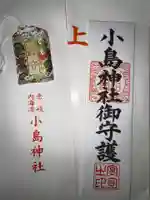 上
小島神社御守護
壱岐
内海湾
小島神社